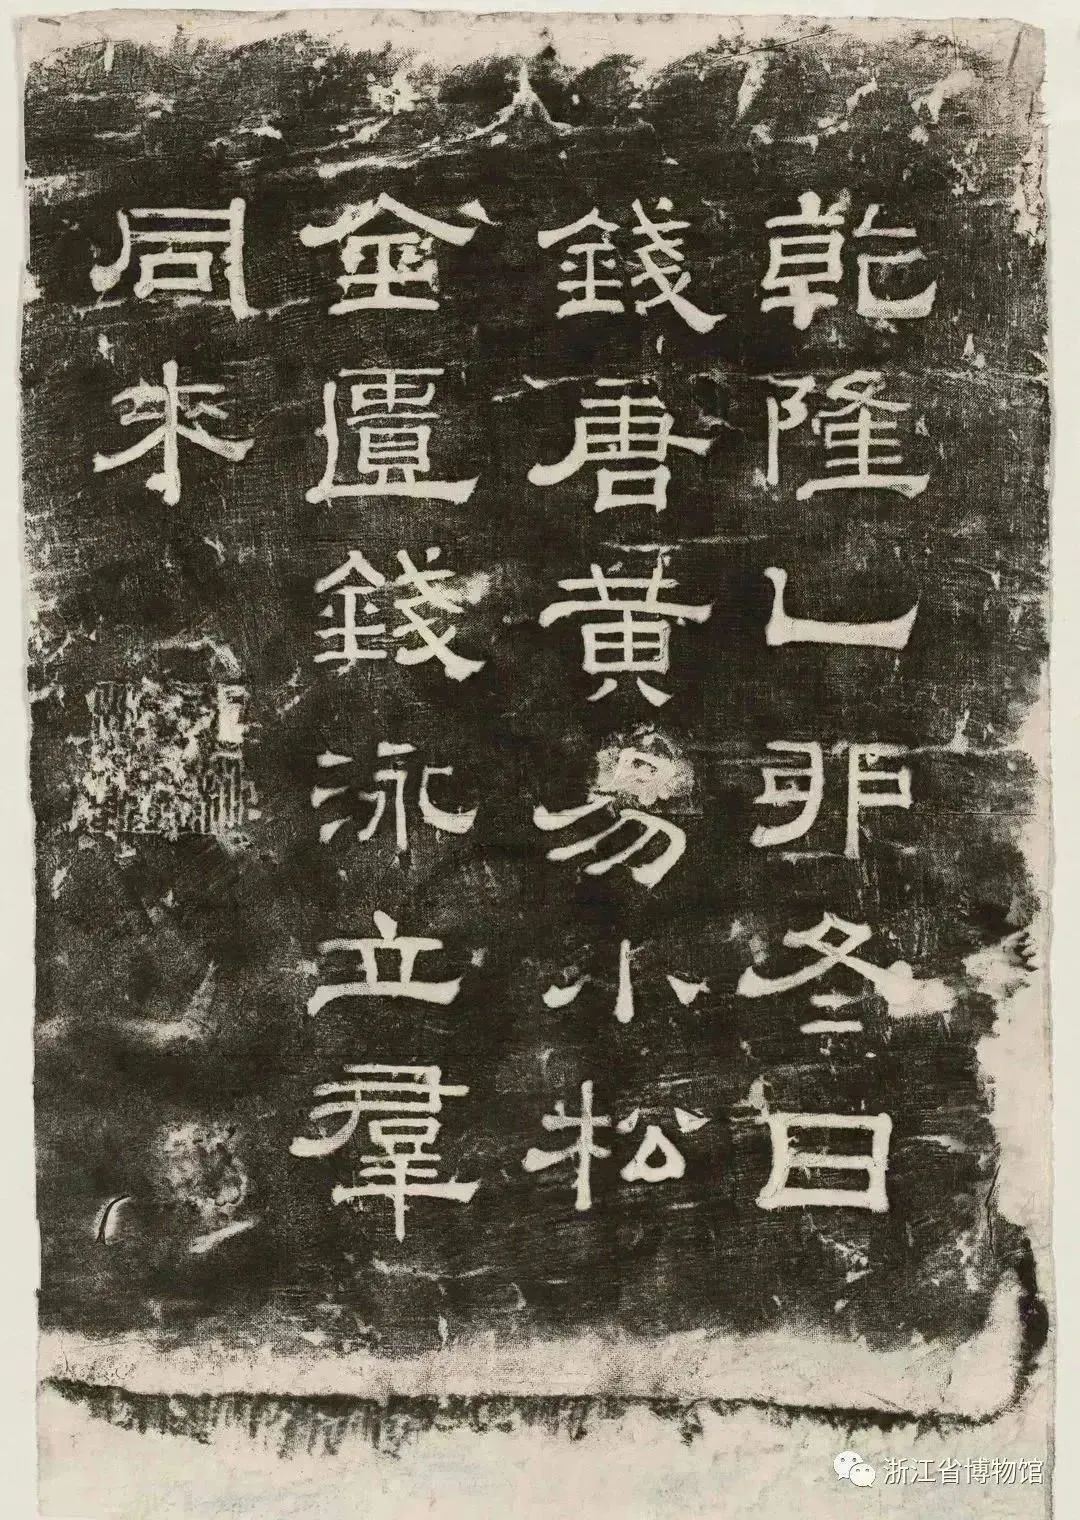 乾隆乙卯冬日
錢唐黃易小松
金匱錢泳立羣
同來
浙江省博物馆